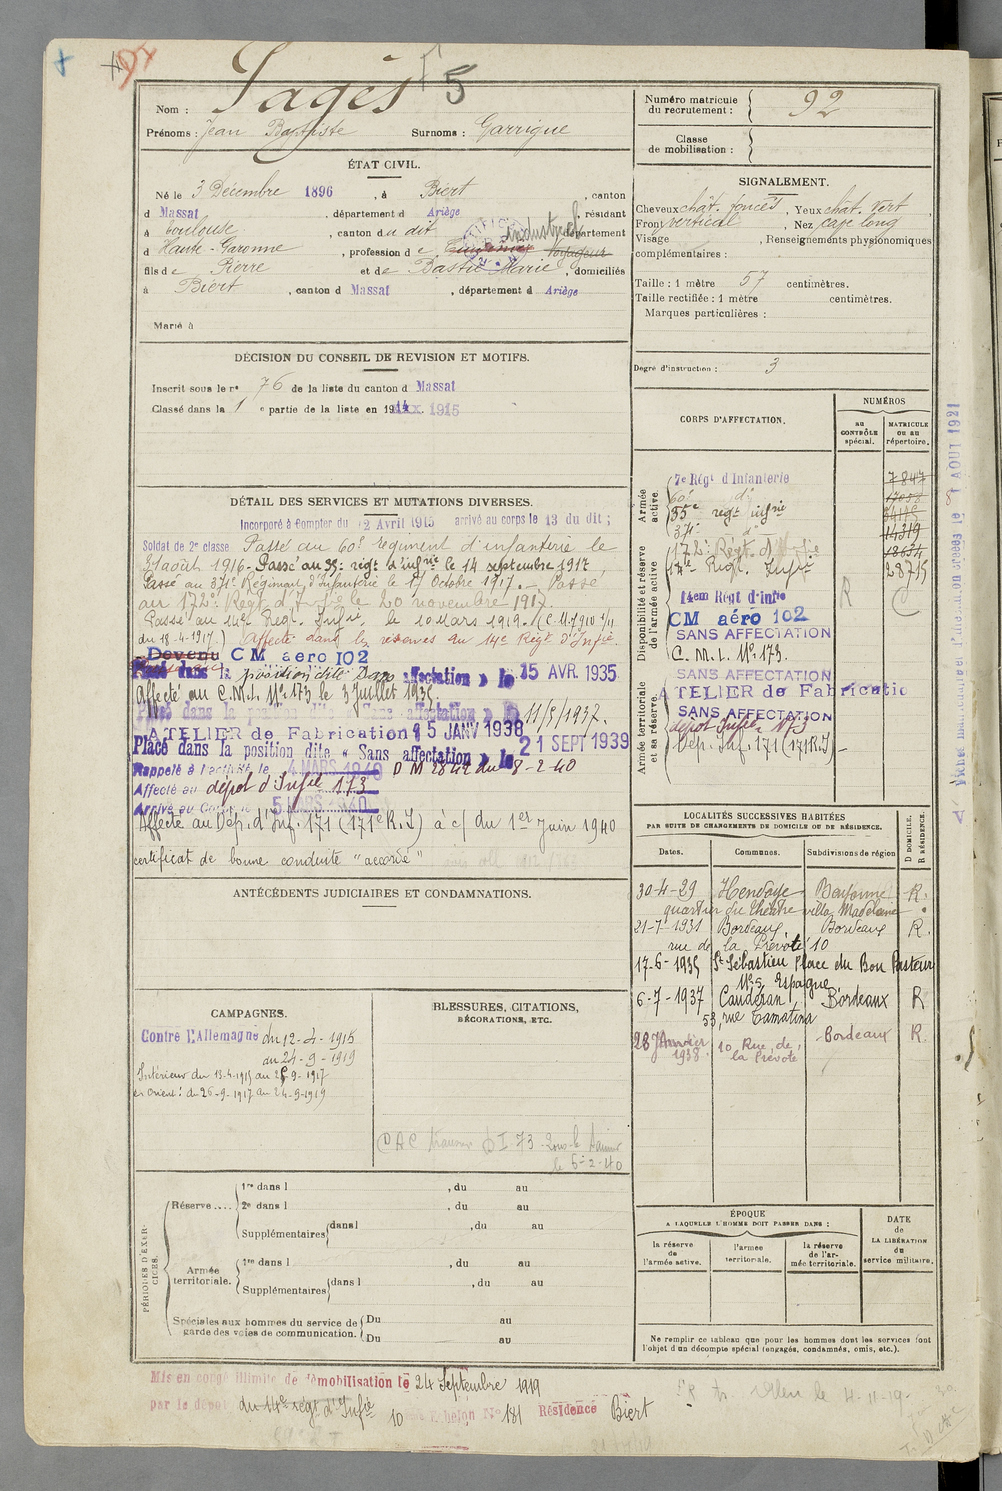 Nom : Pagès 5
Prénoms : Jean Baptiste Surnoms : Garrigue
ÉTAT CIVIL.
Né le 3 Décembre 1896, à Biert, canton
d Massat, département d Ariège, résidant
à Toulouse, canton du dit département
d Haute-Garonne, profession de industriel
fils de Pierre et de Bastié Marie, domiciliés
à Biert, canton d Massat, département d Ariège
Marié à
DÉCISION DU CONSEIL DE REVISION ET MOTIFS.
Inscrit sous le nº 76 de la liste du canton d Massat
Classé dans la 1 e partie de la liste en 1915
DÉTAIL DES SERVICES ET MUTATIONS DIVERSES.
Incorporé à compter du 12 Avril 1915 arrivé au corps le 13 du dit ;
Soldat de 2e classe. Passé au 60e régiment d'infanterie le
31 août 1916. Passé au 35e régt d'infrie le 14 septembre 1917
Passé au 371e Régiment d'infanterie le 17 Octobre 1917. - Passé
au 172e Régt d'Infie le 20 novembre 1917.
Passé au 14e Régt Infie le 10 Mars 1919. (C.M. 7910 1/11
du 18-4-1917.) Affecté dans la réserve au 14e Régt d'Infie
Devenu CM aéro 102
Placé dans la position dite Sans affectation » le 15 AVR. 1935
Affecté au C.M.I. Nº 173 le 3 Juillet 1935.
Placé dans la position dite « Sans affectation » le 11/5/1937.
ATELIER de Fabrication 5 JANV 1938
Placé dans la position dite « Sans affectation » le 21 SEPT 1939
Rappelé à l'activité le 4 MARS 1940 D M 2842 du 8-2-40
Affecté au dépôt d'Infie 173
Arrivé au Corps le 5 MARS 1940
Affecté au Dép. d'Inf. 171 (171e R.I) à c/ du 1er Juin 1940
certificat de bonne conduite "accordé"
ANTÉCÉDENTS JUDICIAIRES ET CONDAMNATIONS.
CAMPAGNES.
Contre l'Allemagne du 12-4-1915
du 24-9-1919
Intérieur du 13-4-1915 au 25-9-1917
en Orient : du 26-9-1917 au 24-9-1919
BLESSURES, CITATIONS,
DÉCORATIONS, ETC.
le 6-2-40
PÉRIODES D'EXERCICES.
Réserve....
1re dans l , du au
2e dans l , du au
Supplémentaires dans l , du au
Armée territoriale.
1re dans l , du au
Supplémentaires dans l , du au
Spéciales aux hommes du service de garde des voies de communication.
Du au
Du au
Mis en congé illimité de démobilisation le 24 Septembre 1919
par le dépôt du 14e régt d'Infie 10 échelon Nº 181 Résidence Biert
Numéro matricule
du recrutement : 92
Classe
de mobilisation :
SIGNALEMENT.
Cheveux chât. foncés, Yeux chât. vert
Front vertical, Nez cave long
Visage , Renseignements physionomiques
complémentaires :
Taille : 1 mètre 57 centimètres.
Taille rectifiée : 1 mètre centimètres.
Marques particulières :
Degré d'instruction : 3
CORPS D'AFFECTATION.
NUMÉROS
au CONTRÔLE spécial.
MATRICULE ou au répertoire.
Armée active.
7e Régt d'Infanterie 7847
60e dº
35e régt infrie
371e dº 14319
Disponibilité et réserve de l'armée active.
172e Régt d'Infie
14e Régt Infie 28715
14em Régt d'Infie R
CM aéro 102
SANS AFFECTATION
C.M.I. Nº 173.
SANS AFFECTATION
Armée territoriale et sa réserve.
ATELIER de Fabricatio
SANS AFFECTATION
dépôt Infie 173
Dép. Inf. 171 (171 R.I) -
1 AOUT 1921
LOCALITÉS SUCCESSIVES HABITÉES
PAR SUITE DE CHANGEMENTS DE DOMICILE OU DE RÉSIDENCE.
Dates. Communes. Subdivisions de région D DOMICILE. R RÉSIDENCE.
30-4-29 Hendaye Bayonne R.
quartier du théâtre villa Madeleine
21-7-1931 Bordeaux Bordeaux R.
rue de la Prévôté 10
17-6-1935 St Sébastien Place du Bon Pasteur
Nº 5 Espagne
6-7-1937 Caudéran Bordeaux R
53, rue Tamatina
28 Janvier 1938. 10 Rue de la Prévôté Bordeaux R.
ÉPOQUE
A LAQUELLE L'HOMME DOIT PASSER DANS :
la réserve de l'armée active.
l'armée territoriale.
la réserve de l'armée territoriale.
DATE DE LA LIBÉRATION du service militaire.
Ne remplir ce tableau que pour les hommes dont les services font
l'objet d'un décompte spécial (engagés, condamnés, omis, etc.).